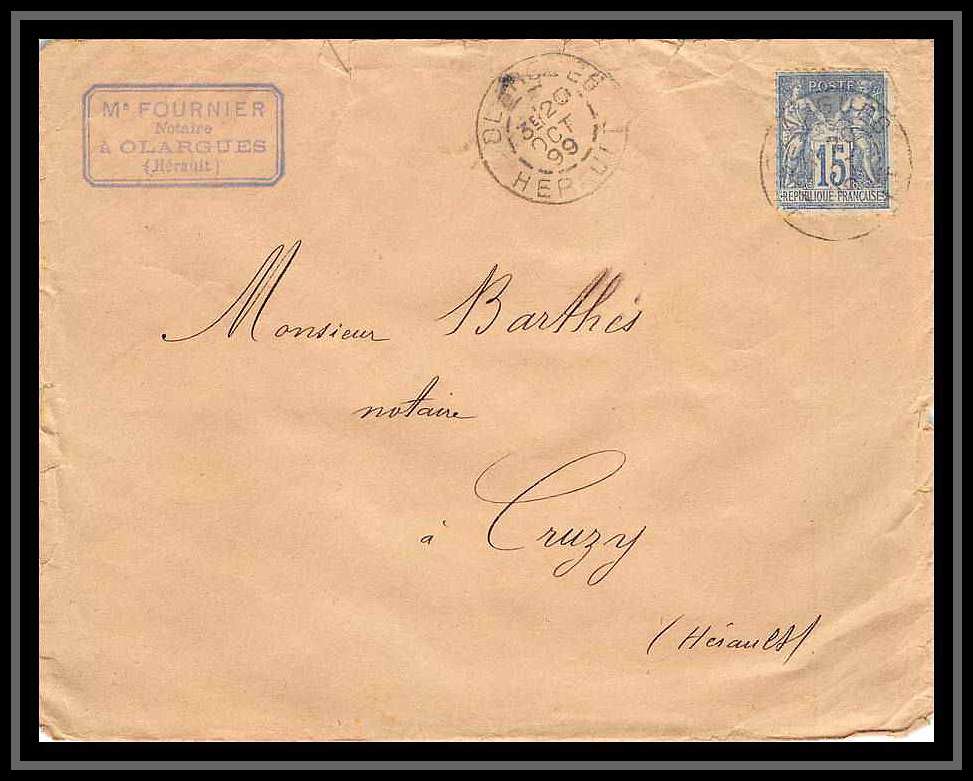 Me FOURNIER
Notaire
à OLARGUES
(Hérault)
OLARGUES
3E
20
OCT
99
HERAULT
POSTE
15
REPUBLIQUE FRANÇAISE
Monsieur Barthés
notaire
à Cruzy
(Hérault)